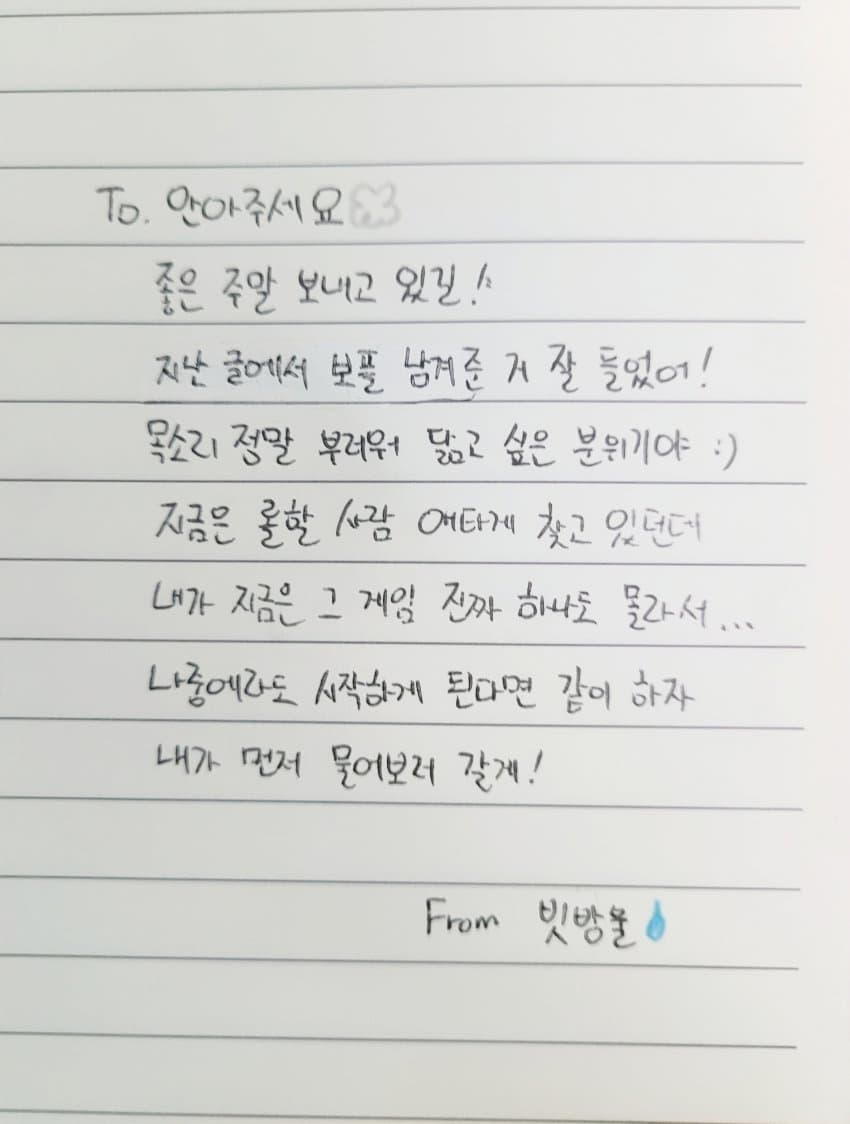 To. 안아주세요
좋은 주말 보내고 있길!
지난 글에서 보플 남겨준 거 잘 들었어!
목소리 정말 부러워 닮고 싶은 분위기야 :)
지금은 롤할 사람 애타게 찾고 있던데
내가 지금은 그 게임 진짜 하나도 몰라서...
나중에라도 시작하게 된다면 같이 하자
내가 먼저 물어보러 갈게!
From 빗방울